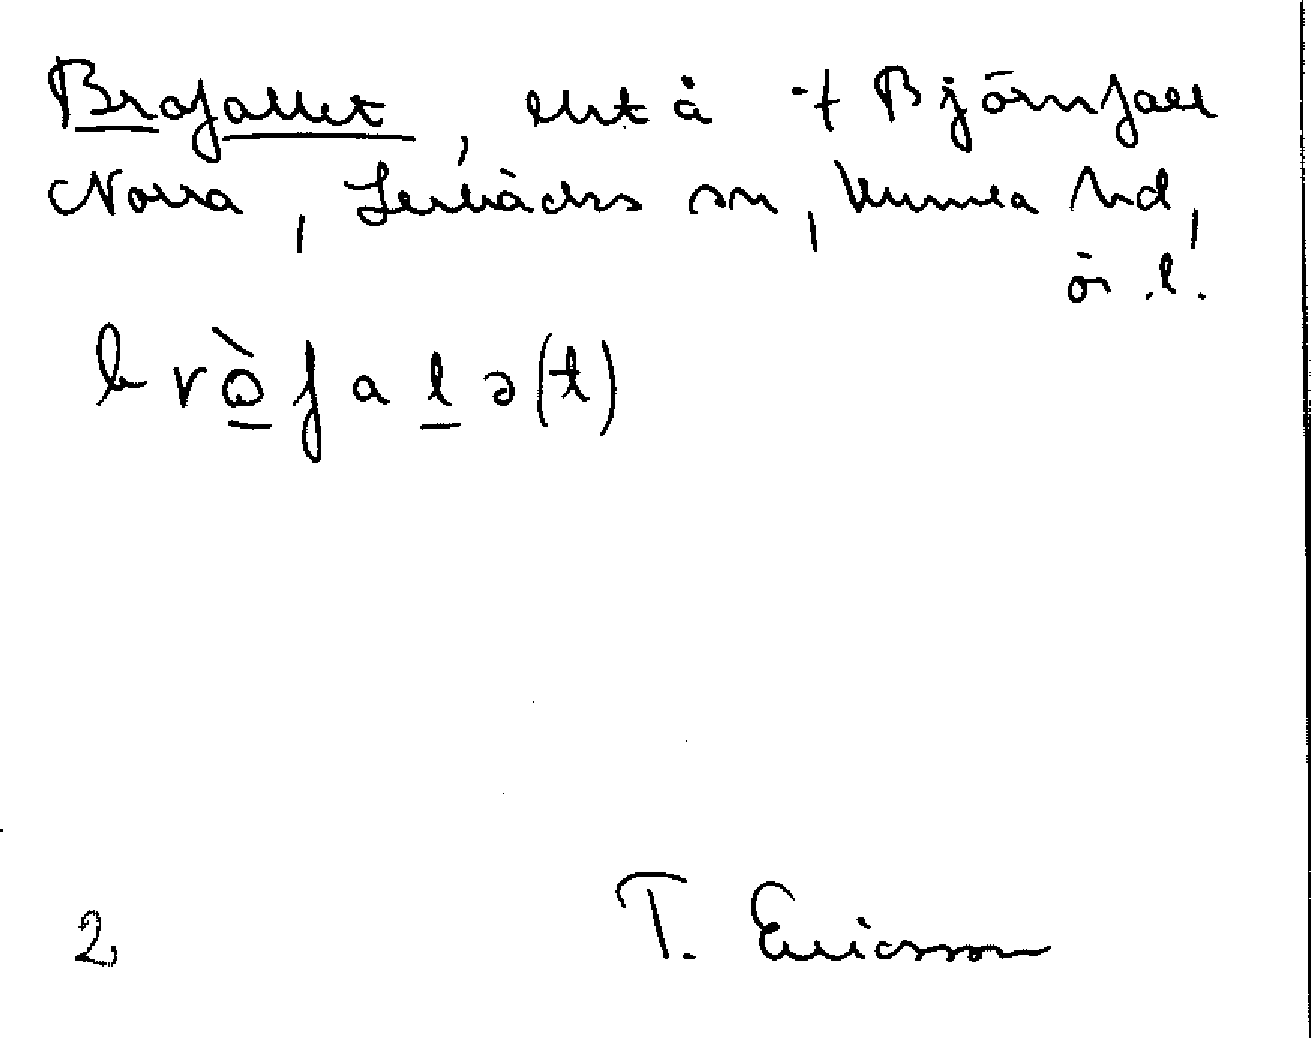 Brofallet, ent å t Björnfall
Norra, Lerbäcks sn, Kumla hd,
ör. l.
bròfalə(t)
2 T. Ericsson